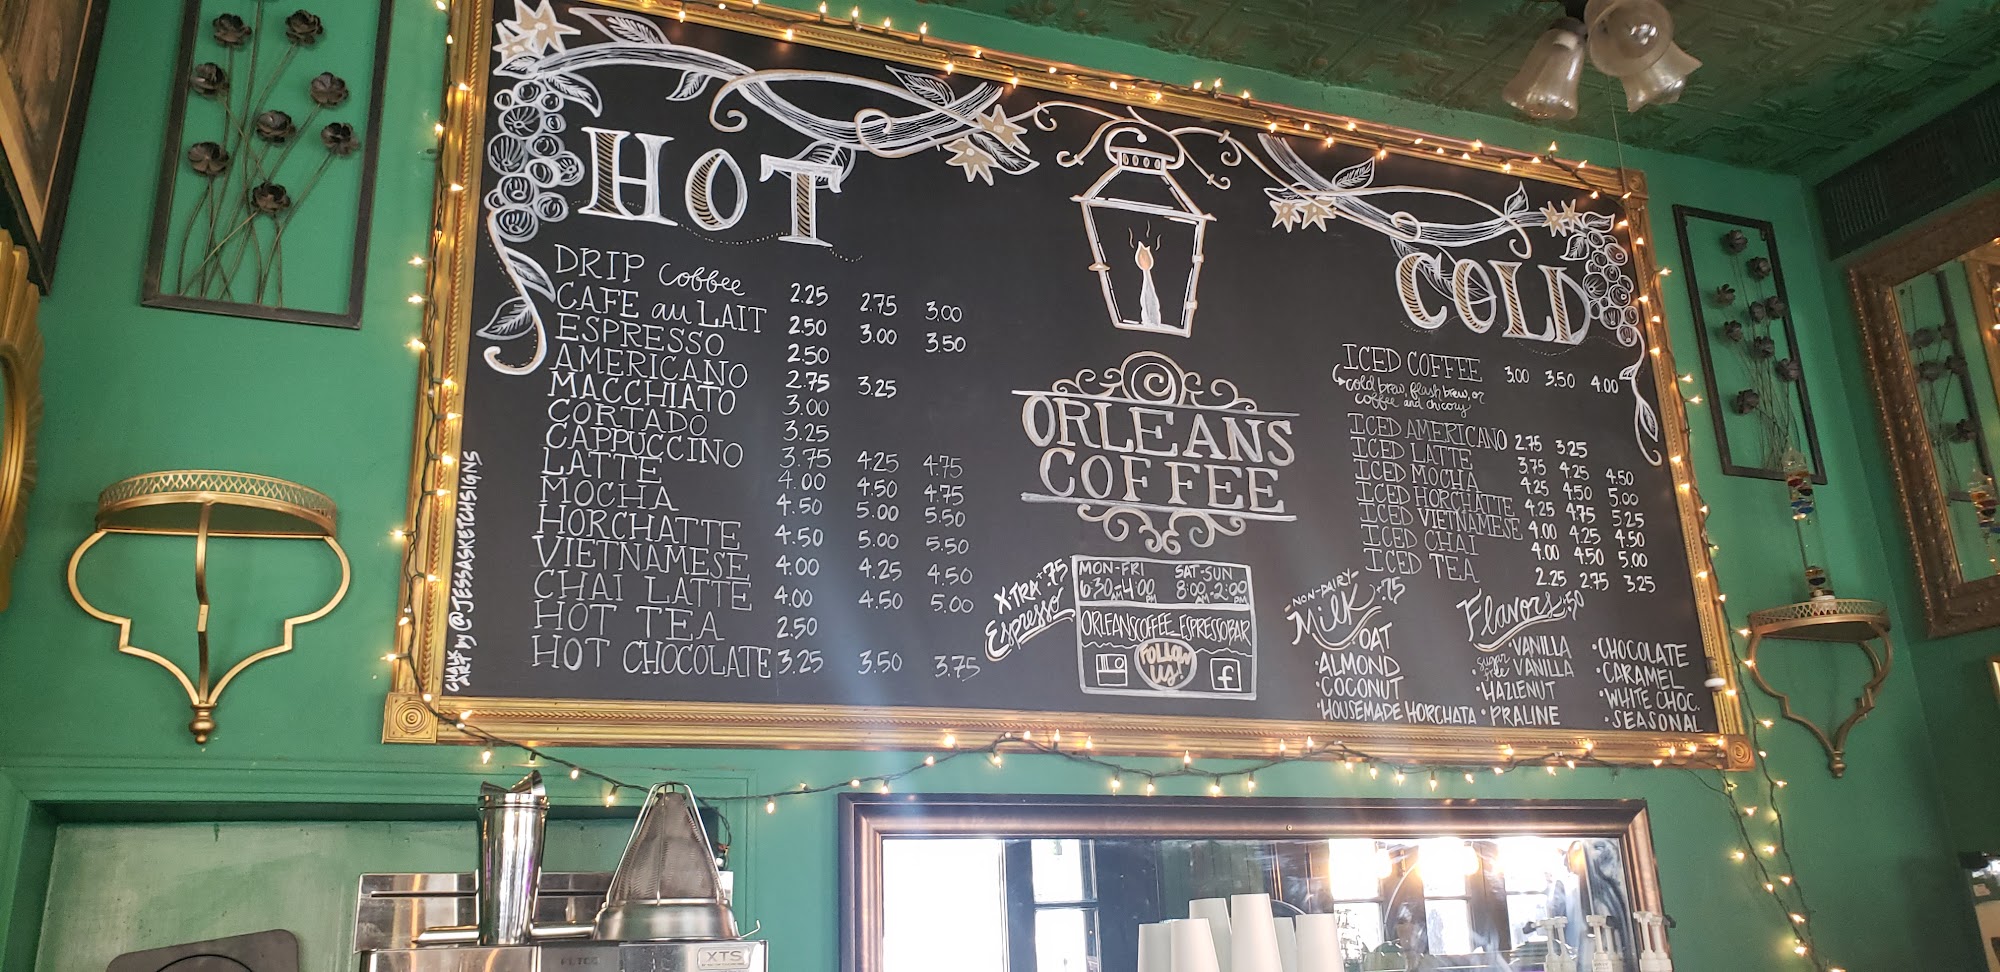 HOT
DRIP coffee 2.25 2.75 3.00
CAFE au LAIT 2.50 3.00 3.50
ESPRESSO 2.50
AMERICANO 2.75 3.25
MACCHIATO 3.00
CORTADO 3.25
CAPPUCCINO 3.75 4.25 4.75
LATTE 4.00 4.50 4.75
MOCHA 4.50 5.00 5.50
HORCHATTE 4.50 5.00 5.50
VIETNAMESE 4.00 4.25 4.50
CHAI LATTE 4.00 4.50 5.00
HOT TEA 2.50
HOT CHOCOLATE 3.25 3.50 3.75
CHALK ART by @JESSASKETCHSIGNS
ORLEANS
COFFEE
X-TRA +.75
Espresso
MON-FRI SAT-SUN
6:30AM-4:00PM 8:00AM-2:00PM
ORLEANSCOFFEE_ESPRESSOBAR
FOLLOW
US!
f
COLD
ICED COFFEE 3.00 3.50 4.00
cold brew, flash brew, or
coffee and chicory
ICED AMERICANO 2.75 3.25
ICED LATTE 3.75 4.25 4.50
ICED MOCHA 4.25 4.50 5.00
ICED HORCHATTE 4.25 4.75 5.25
ICED VIETNAMESE 4.00 4.25 4.50
ICED CHAI 4.00 4.50 5.00
ICED TEA 2.25 2.75 3.25
-NON-DAIRY-
Milk +.75
•OAT
•ALMOND
•COCONUT
•HOUSEMADE HORCHATA
Flavors .50
•VANILLA
•sugar free VANILLA
•HAZLENUT
•PRALINE
•CHOCOLATE
•CARAMEL
•WHITE CHOC.
•SEASONAL
XTS